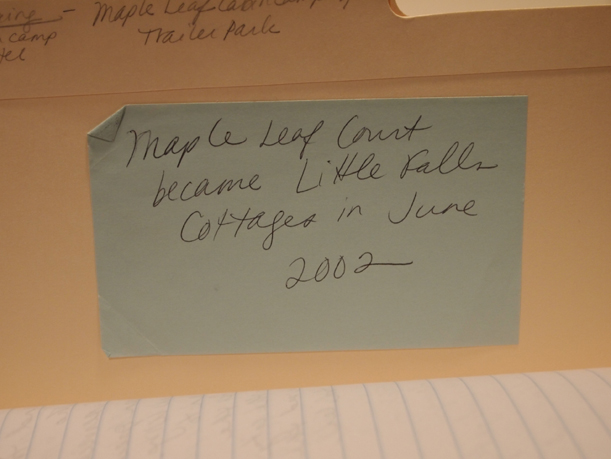 Maple Leaf Cabin
camp
Trailer Park
Maple Leaf Court
became Little Falls
Cottages in June
2002